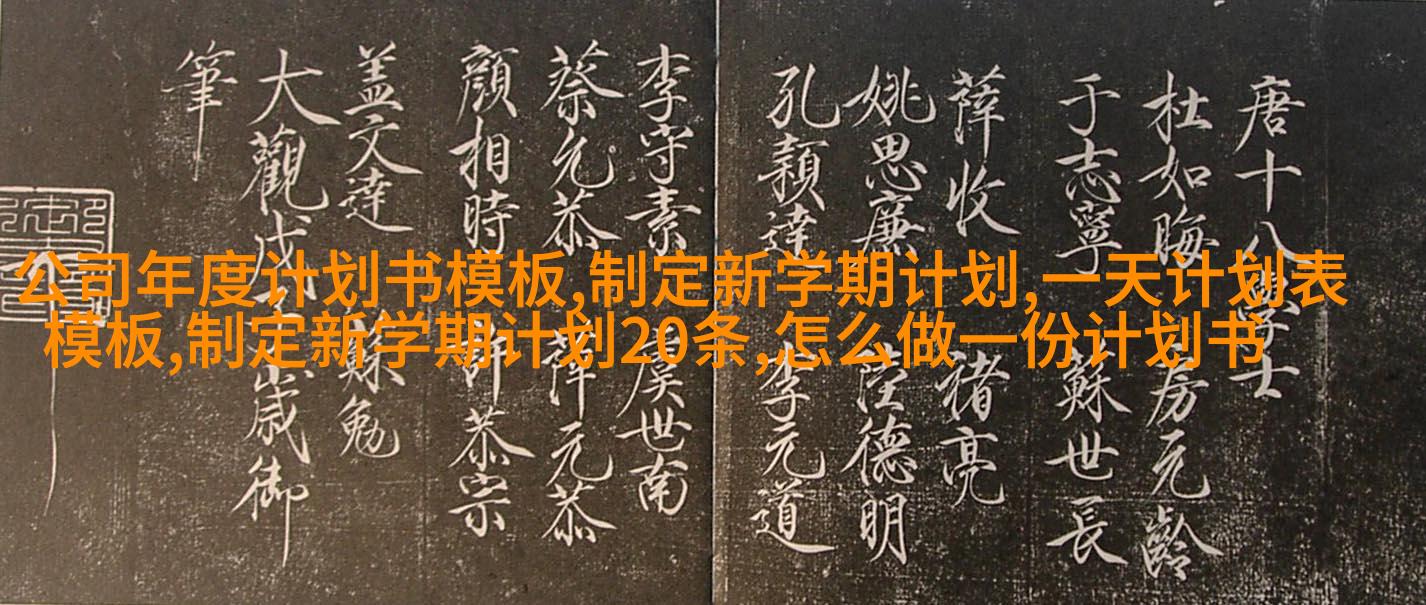 唐十八學士
杜如晦 房元齡
于志寧 蘇世長
薛收 褚亮
姚思廉 陸德明
孔穎達 李元道
李守素 虞世南
蔡元恭 薛元恭
顏相時 許恭宗
盖文達 蘇勉
大觀戊 歲御
筆
公司年度计划书模板,制定新学期计划,一天计划表
模板,制定新学期计划20条,怎么做一份计划书